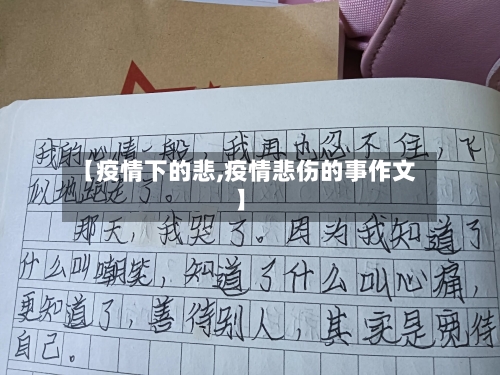 我的心情一般，我再也忍不住，飞
似地跑走了。
【疫情下的悲,疫情悲伤的事作文
】
那天，我哭了。因为我知道了
什么叫嘲笑，知道了什么叫心痛，
更知道了，善待别人，其实是宽待
自己。